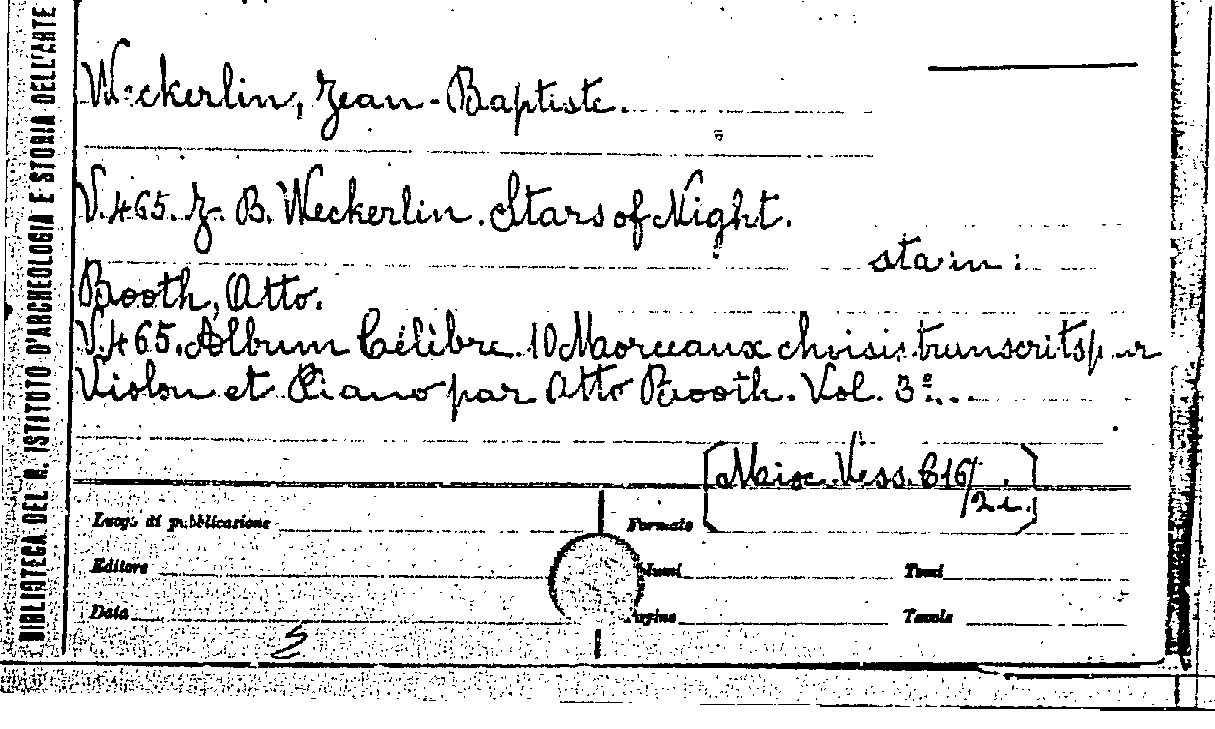 BIBLIATECA DEL R. ISTITUTO D'ARCHEOLOGIA E STORIA DELL'ARTE
Weckerlin, Jean-Baptiste.
V. 465. J. B. Weckerlin. Stars of Night.
sta in:
Booth, Otto.
V. 465. Album Célèbre. 10 Morceaux choisis, transcrits pour
Violon et Piano par Otto Booth. Vol. 3º...
Misc. Vess. C16/
Luogo di pubblicazione
Formato
Editore
Tomi
Data
Pagine
Tavole